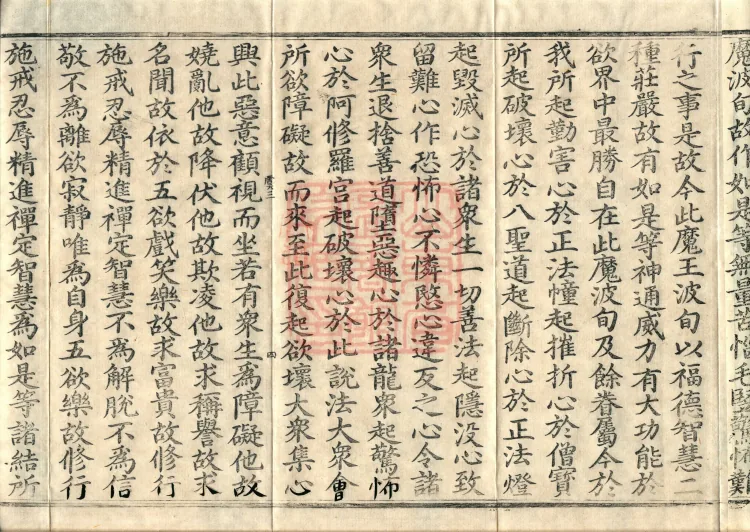 魔波旬故作如是等無量苦惱毛竪驚怖難
行之事是故今此魔王波旬以福德智慧二
種莊嚴故有如是等神通威力有大功能於
欲界中最勝自在此魔波旬及餘眷屬今於
我所起勤害心於正法幢起摧折心於僧寶
所起破壞心於八聖道起斷除心於正法燈
起毀滅心於諸衆生一切善法起隱没心致
留難心作恐怖心不憐愍心違反之心令諸
衆生退捨善道墮惡趣心於諸龍衆起驚怖
心於阿修羅宮起破壞心於此說法大衆會
所欲障礙故而來至此復起欲壞大衆集心
虞三 四
興此惡意顧視而坐若有衆生爲障礙他故
嬈亂他故降伏他故欺凌他故求稱譽故求
名聞故依於五欲戲笑樂故求富貴故修行
施戒忍辱精進禪定智慧不爲解脫不爲信
敬不爲離欲寂靜唯爲自身五欲樂故修行
施戒忍辱精進禪定智慧爲如是等諸結所